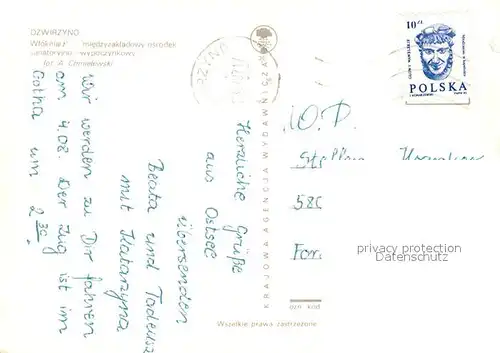 DŹWIRZYNO
międzyzakładowy ośrodek
sanatoryjno - wypoczynkowy
fot. A. Chmielewski
Herzliche Grüße
aus Ostsee
übersenden
Beata und Tadeusz
mit Katarzyna
Wir werden zu Dir fahren
am 4.08. Der Zug ist im
Gotha um 2 30.
KRAJOWA AGENCJA WYDAWNICZA
Wszelkie prawa zastrzeżone
10 zł
POLSKA
O.P.
580
For.
privacy protection
Datenschutz
kod